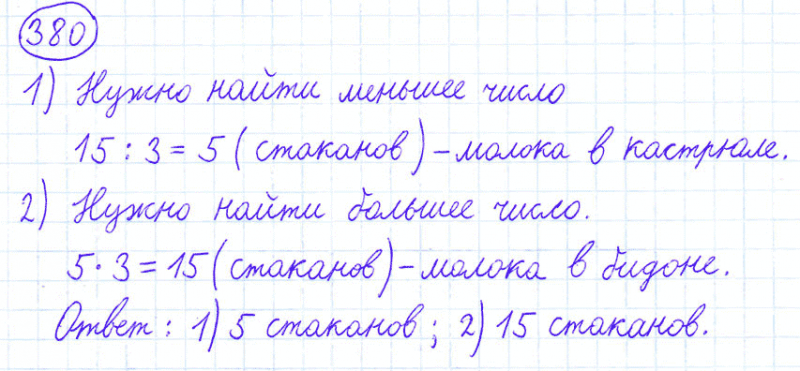 380
1) Нужно найти меньшее число
15 : 3 = 5 (стаканов) – молока в кастрюле.
2) Нужно найти большее число.
5 · 3 = 15 (стаканов) – молока в бидоне.
Ответ : 1) 5 стаканов ; 2) 15 стаканов.